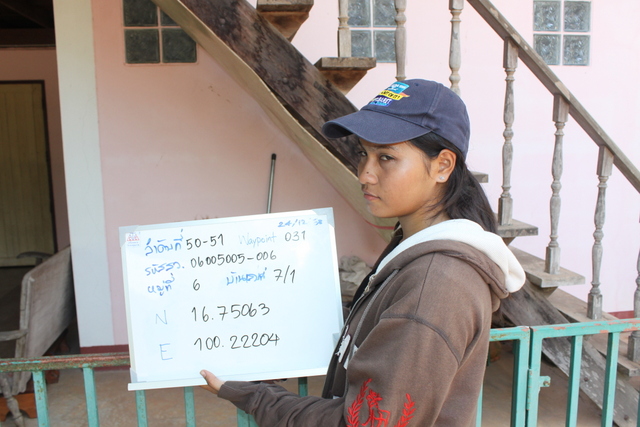 24/12/52
ลำดับที่ 50-51 Waypoint 031
รหัสรูป. 06005005-006
หมู่ที่ 6 บ้านเลขที่ 7/1
N 16.75063
E 100.22204